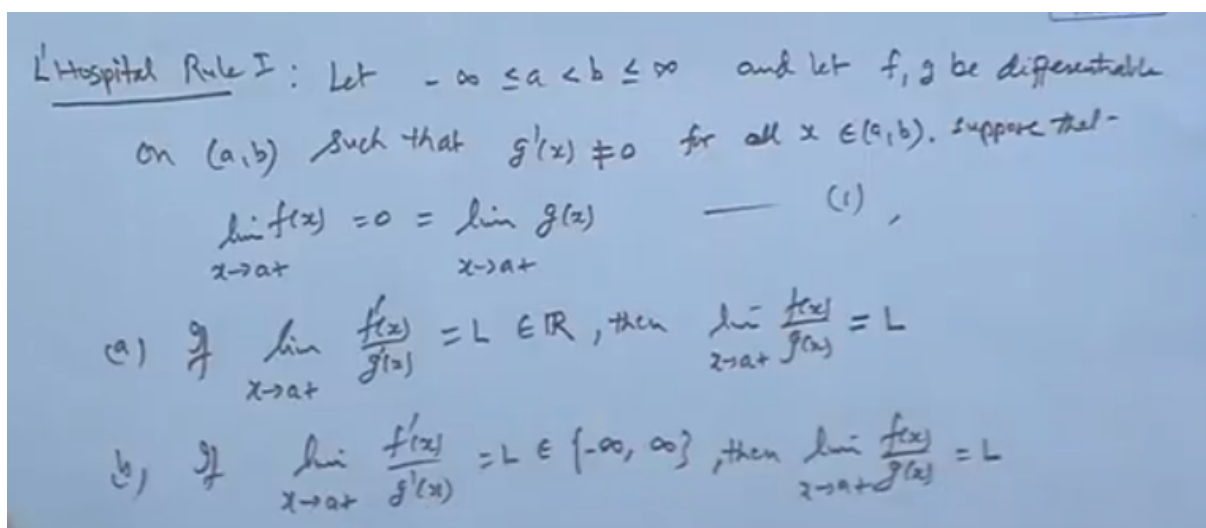 L'Hospital Rule I : Let -∞ ≤ a < b ≤ ∞ and let f, g be differentiable
on (a,b) such that g'(x) ≠ 0 for all x ∈ (a,b). suppose that
lim f(x) = 0 = lim g(x) — (1),
x→a+ x→a+
(a) If lim f'(x)/g'(x) = L ∈ ℝ, then lim f(x)/g(x) = L
x→a+ x→a+
b) If lim f'(x)/g'(x) = L ∈ {-∞, ∞}, then lim f(x)/g(x) = L
x→a+ x→a+